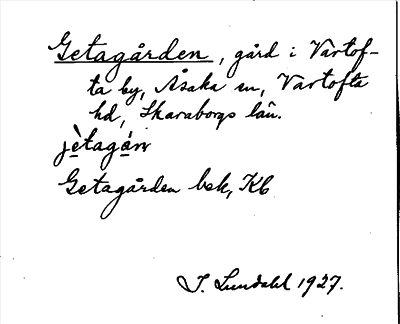 Getagården, gård i Vartof-
ta by, Åsaka sn, Vartofta
hd, Skaraborgs län.
jètagán
Getagården bsk, Kb
I. Lundahl 1927.